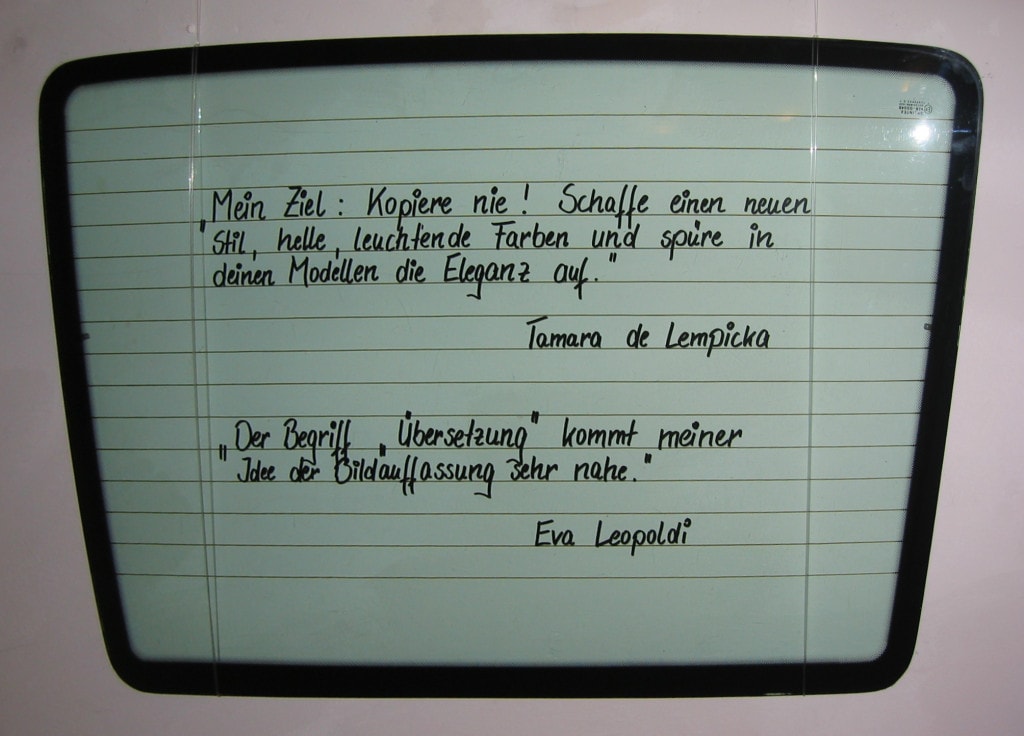 „Mein Ziel: Kopiere nie! Schaffe einen neuen
Stil, helle, leuchtende Farben und spüre in
deinen Modellen die Eleganz auf."
Tamara de Lempicka
„Der Begriff „Übersetzung" kommt meiner
Idee der Bildauffassung sehr nahe."
Eva Leopoldi